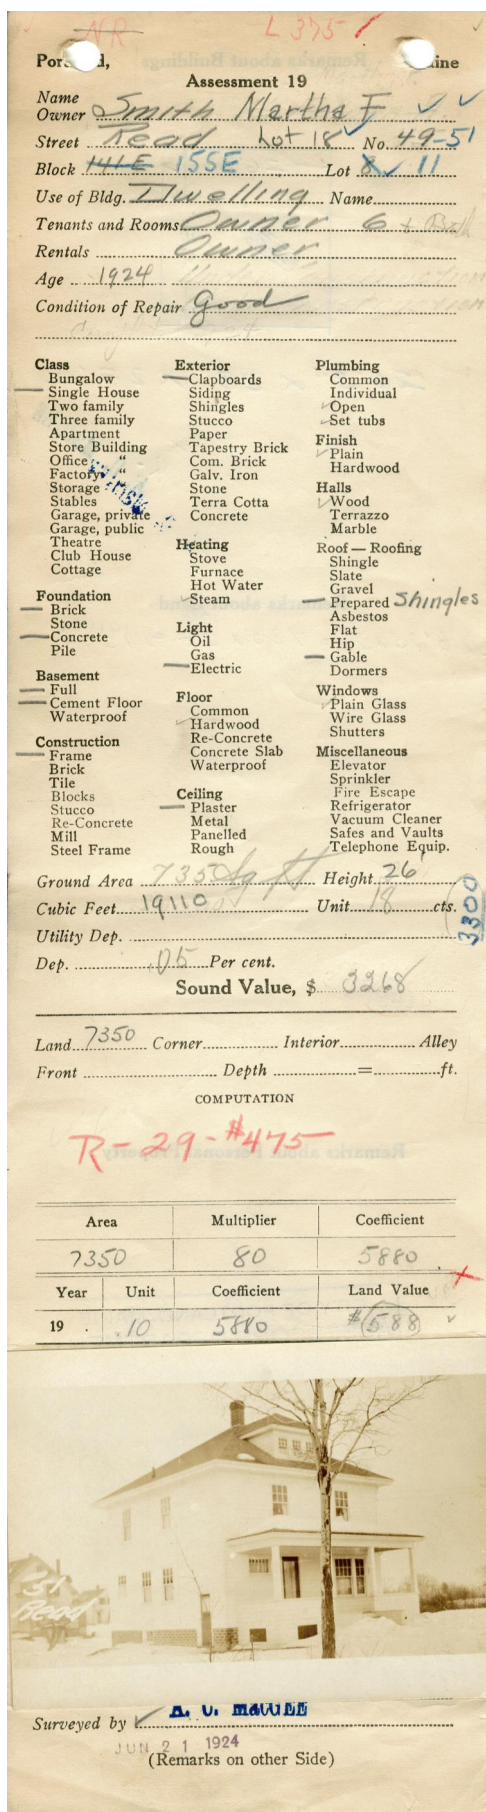 NR L 375
Portland, Maine
Assessment 19
Name
Owner Smith Martha F
Street Read Lot 18 No. 49-51
Block 141E 155E Lot 8 11
Use of Bldg. Dwelling Name
Tenants and Rooms Owner 6 + Bath
Rentals Owner
Age 1924
Condition of Repair Good
Class
Bungalow
Single House
Two family
Three family
Apartment
Store Building
Office "
Factory "
Storage
Stables
Garage, private
Garage, public
Theatre
Club House
Cottage
Foundation
Brick
Stone
Concrete
Pile
Basement
Full
Cement Floor
Waterproof
Construction
Frame
Brick
Tile
Blocks
Stucco
Re-Concrete
Mill
Steel Frame
Exterior
Clapboards
Siding
Shingles
Stucco
Paper
Tapestry Brick
Com. Brick
Galv. Iron
Stone
Terra Cotta
Concrete
Heating
Stove
Furnace
Hot Water
Steam
Light
Oil
Gas
Electric
Floor
Common
Hardwood
Re-Concrete
Concrete Slab
Waterproof
Ceiling
Plaster
Metal
Panelled
Rough
Plumbing
Common
Individual
Open
Set tubs
Finish
Plain
Hardwood
Halls
Wood
Terrazzo
Marble
Roof — Roofing
Shingle
Slate
Gravel
Prepared Shingles
Asbestos
Flat
Hip
Gable
Dormers
Windows
Plain Glass
Wire Glass
Shutters
Miscellaneous
Elevator
Sprinkler
Fire Escape
Refrigerator
Vacuum Cleaner
Safes and Vaults
Telephone Equip.
Ground Area 735 Sq ft Height 26'
Cubic Feet 19110 Unit 18 cts.
3300
Utility Dep.
Dep. .05 Per cent.
Sound Value, $ 3268
Land 7350 Corner Interior Alley
Front Depth = ft.
COMPUTATION
R-29-#475
Area Multiplier Coefficient
7350 80 5880
Year Unit Coefficient Land Value
19 .10 5880 #588
51
Read
Surveyed by A. C. MAGEE
JUN 21 1924
(Remarks on other Side)